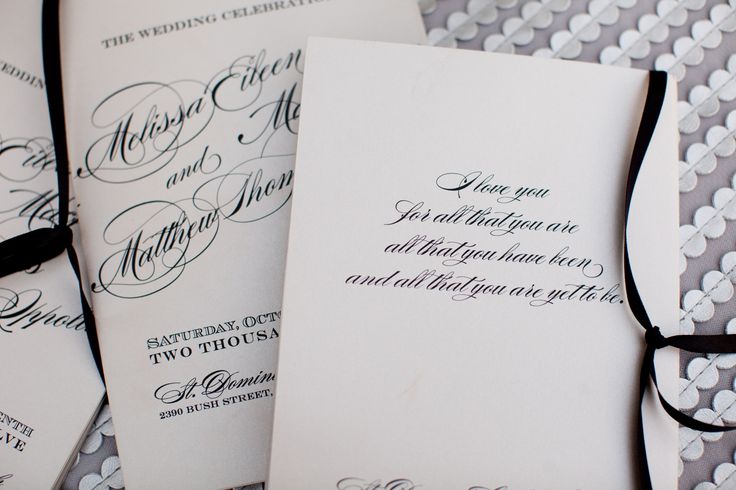 WEDDING
Eileen
Appolo
ENTH
LVE
THE WEDDING CELEBRATION
Melissa Eileen
and
Matthew Thom
SATURDAY, OCT
TWO THOUSA
St. Domin
2390 BUSH STREET,
I love you
for all that you are
all that you have been
and all that you are yet to be.